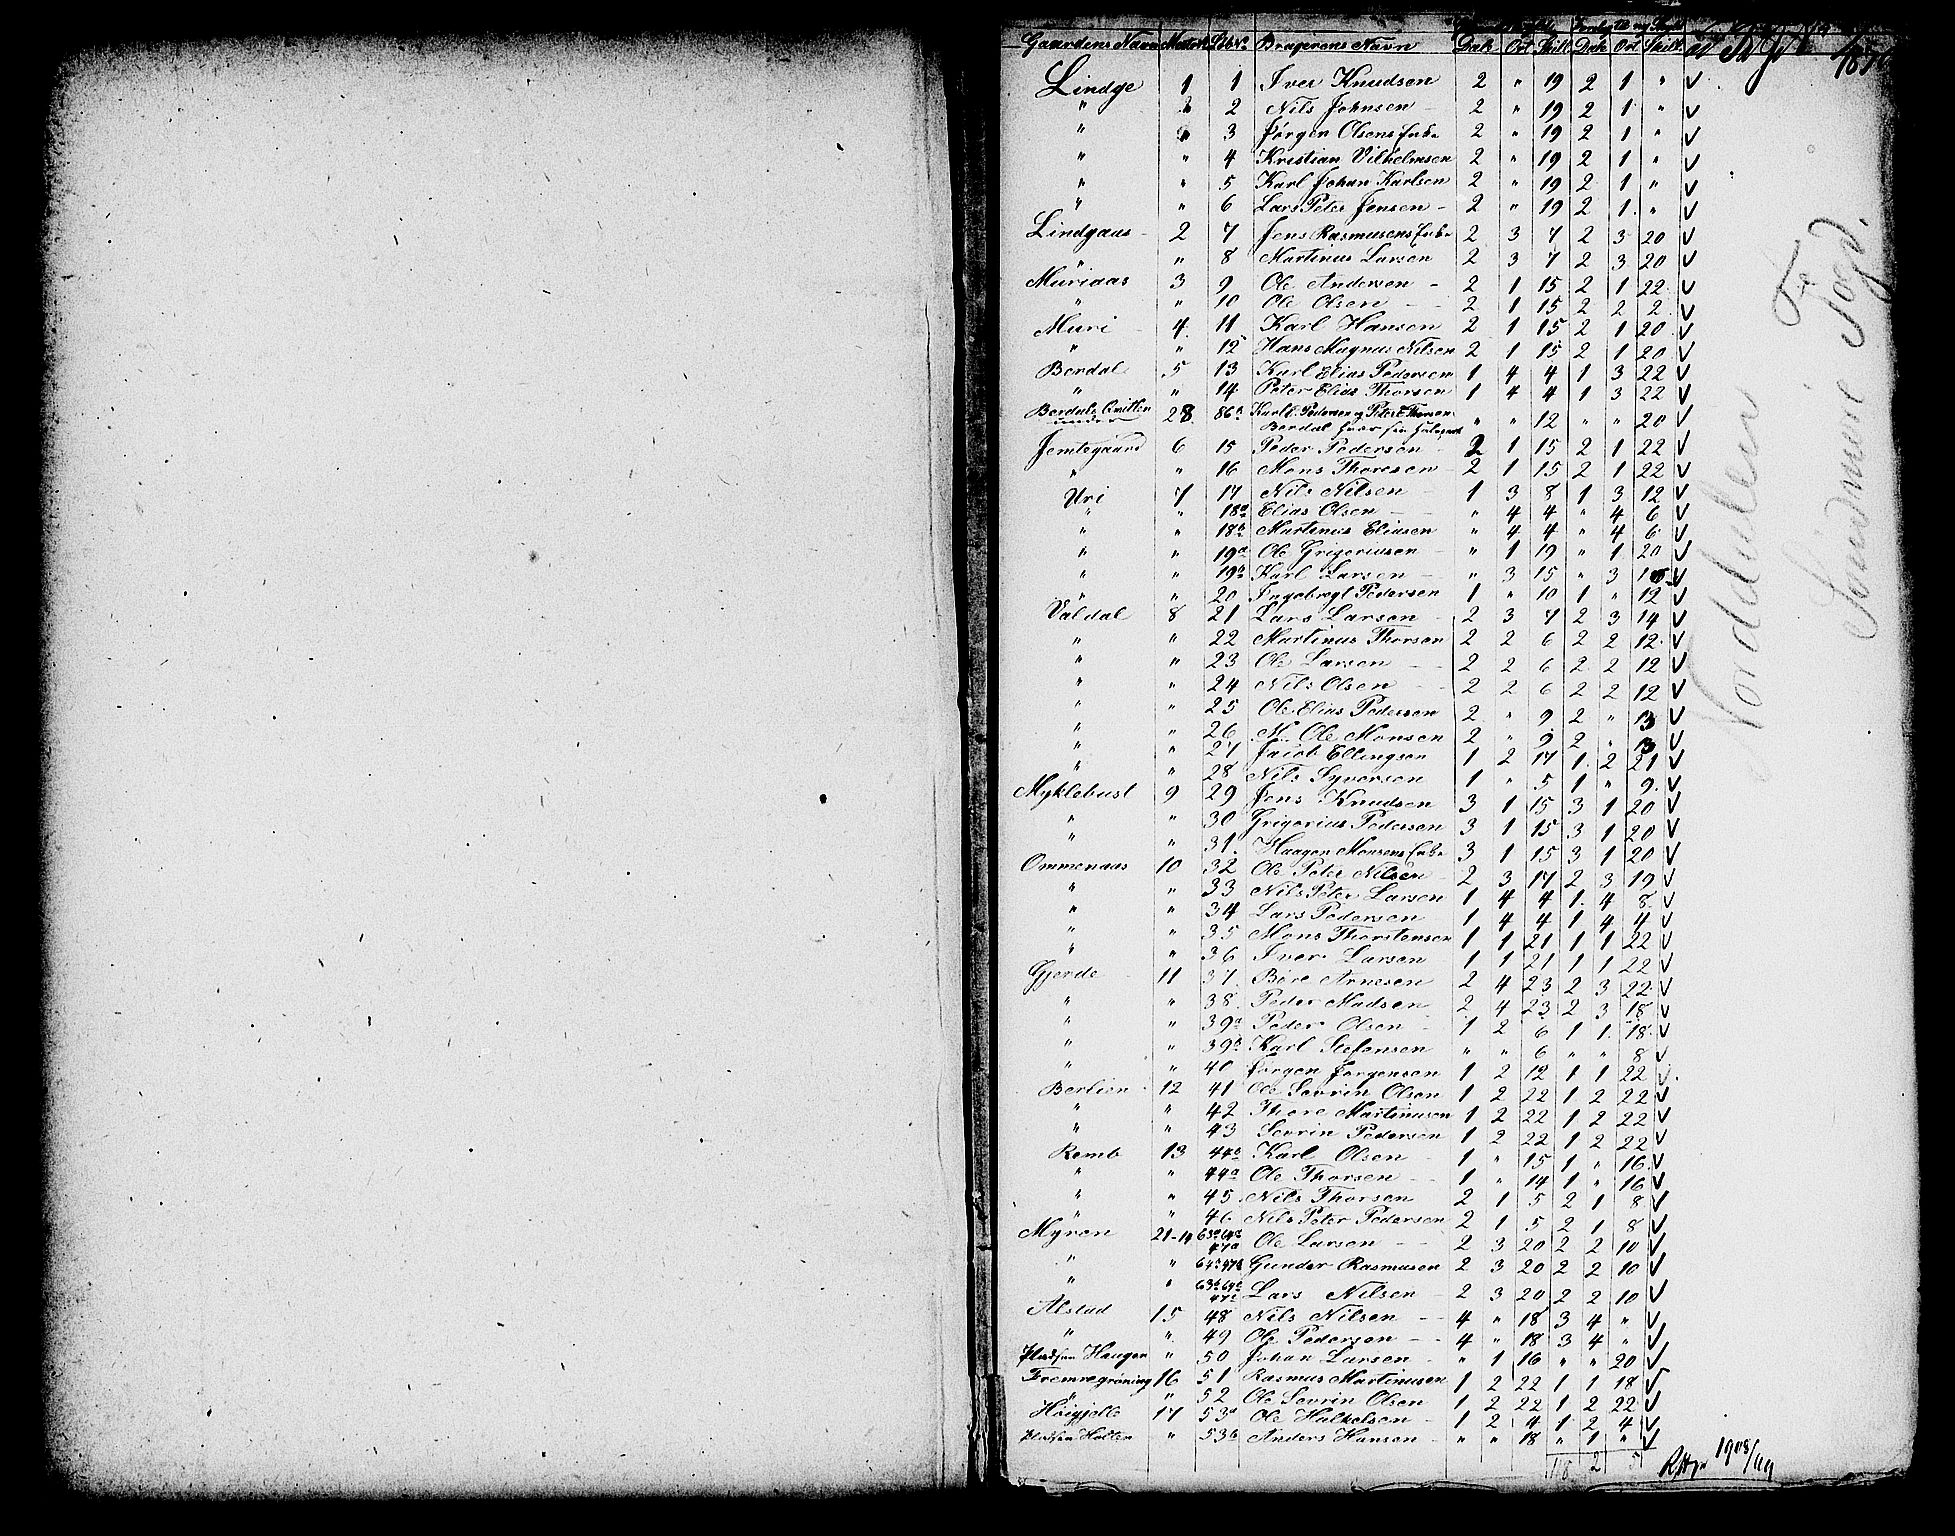 Gaardens Navn Matr N Løb No Brugerens Navn Dal Ort Skill Dal Ort Skill
Lindge 1 1 Iver Knudsen 2 " 19 2 1 " ✓
" 2 Nils Johnsen 2 " 19 2 1 " ✓
" " 3 Jørgen Olsens Enke 2 " 19 2 1 " ✓
" " 4 Kristian Vilhelmsen 2 " 19 2 1 " ✓
" " 5 Karl Johan Karlsen 2 " 19 2 1 " ✓
" " 6 Lars Peter Jensen 2 " 19 2 1 " ✓
Lindgaas 2 7 Jens Rasmusens Enke 2 3 7 2 3 20 ✓
" " 8 Martinus Larsen 2 3 7 2 3 20 ✓
Muriaas 3 9 Ole Andersen 2 1 15 2 1 22 ✓
" " 10 Ole Olsen 2 1 15 2 2 2 ✓
Muri 4 11 Karl Hansen 2 1 15 2 1 20 ✓
" " 12 Hans Magnus Nilsen 2 1 15 2 1 20 ✓
Berdal 5 13 Karl Elias Pedersen 1 4 4 1 3 22 ✓
" " 14 Peter Elias Thorsen 1 4 4 1 3 22 ✓
Berdals Qvilten 28 86a Karl E. Pedersen og Peter E. Thorsen
under Berdal " " 12 " " 20 ✓
Jemtegaard 6 15 Peder Pedersen 2 1 15 2 1 22 ✓
" " 16 Mons Thoresen 2 1 15 2 1 22 ✓
Uri 7 17 Nils Nilsen 1 3 8 1 3 12 ✓
" " 18a Elias Olsen " 4 4 " 4 6 ✓
" " 18b Martinus Eliasen " 4 4 " 4 6 ✓
" " 19a Ole Grigoriusen " 1 19 " 1 20 ✓
" " 19b Karl Larsen " 3 15 " 3 ✓
" " 20 Ingebregt Pedersen 1 " 10 1 " 12 ✓
Valdal 8 21 Lars Larsen 2 3 7 2 3 14 ✓
" " 22 Martinus Thorsen 2 2 6 2 2 12 ✓
" " 23 Ole Larsen 2 2 6 2 2 12 ✓
" " 24 Nils Olsen 2 2 6 2 2 12 ✓
" " 25 Ole Elias Pedersen 2 " 9 2 " 13 ✓
" " 26 Ole Monsen 2 " 9 2 " 13 ✓
" " 27 Jacob Ellingsen 1 2 17 1 2 21 ✓
" " 28 Nils Syversen 1 " 5 1 " 9 ✓
Myklebust 9 29 Jens Knudsen 3 1 15 3 1 20 ✓
" " 30 Grigorius Pedersen 3 1 15 3 1 20 ✓
" " 31 Haagen Monsens Enke 3 1 15 3 1 20 ✓
Ommenaas 10 32 Ole Peter Nilsen 2 3 17 2 3 19 ✓
" " 33 Nils Peter Larsen 1 4 4 1 4 8 ✓
" " 34 Lars Pedersen 1 4 4 1 4 4 ✓
" " 35 Mons Thorstensen 1 1 21 1 1 22 ✓
" " 36 Iver Larsen 1 1 21 1 1 22 ✓
Gjerde 11 37 Bere Arnesen 2 4 23 2 3 22 ✓
" " 38 Peder Madsen 2 4 23 2 3 18 ✓
" " 39a Peder Olsen 1 2 6 1 1 18 ✓
" " 39b Karl Stefansen " " 6 " " 8 ✓
" " 40 Jørgen Jørgensen 1 2 12 1 1 22 ✓
Berlien 12 41 Ole Sevrin Olsen 1 2 22 1 2 22 ✓
" " 42 Thore Martinusen 1 2 22 1 2 22 ✓
" " 43 Sevrin Pedersen 1 2 22 1 2 22 ✓
Remb 13 44a Karl Olsen 1 " 15 1 " 16 ✓
" " 44a Ole Thorsen 1 " 14 1 " 16 ✓
" " 45 Nils Thorsen 2 1 5 2 1 8 ✓
" " 46 Nils Peter Pedersen 2 1 5 2 1 8 ✓
Myren 21-14 63a 64a 47a Ole Larsen 2 3 20 2 2 10 ✓
" " Gunder Rasmusen 2 3 20 2 2 10 ✓
" " Lars Nilsen 2 3 20 2 2 10 ✓
Alstad 15 48 Nils Nilsen 4 " 18 3 4 " ✓
" " 49 Ole Pedersen 4 " 18 3 4 " ✓
Pladsen Haugen " 50 Johan Larsen " 1 16 " " 20 ✓
Fremregrøning 16 51 Rasmus Martinusen 1 2 22 1 1 18 ✓
" 52 Ole Sevrin Olsen 1 2 22 1 2 22 ✓
Høigjelle 17 53a Ole Halkelsen 1 2 4 1 2 4 ✓
Pladsen Holten " 53b Anders Hansen " " 18 " 1 " ✓
118 2 5
Norddalen
Søndmøre Fogd.